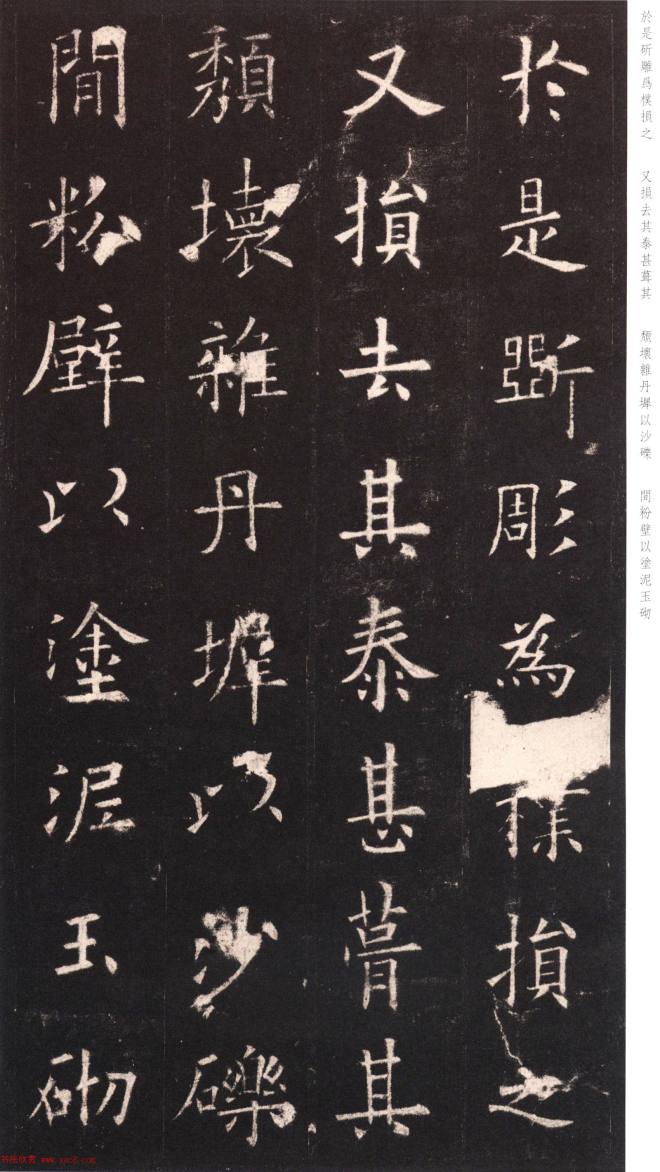 於是斲彫為樸損之
又損去其泰甚葺其
頹壞雜丹墀以沙礫
閒粉壁以塗泥玉砌
於是斫雕爲樸損之　又損去其泰甚葺其　頹壞雜丹墀以沙礫　間粉壁以塗泥玉砌
书法欣赏 www.yac8.com